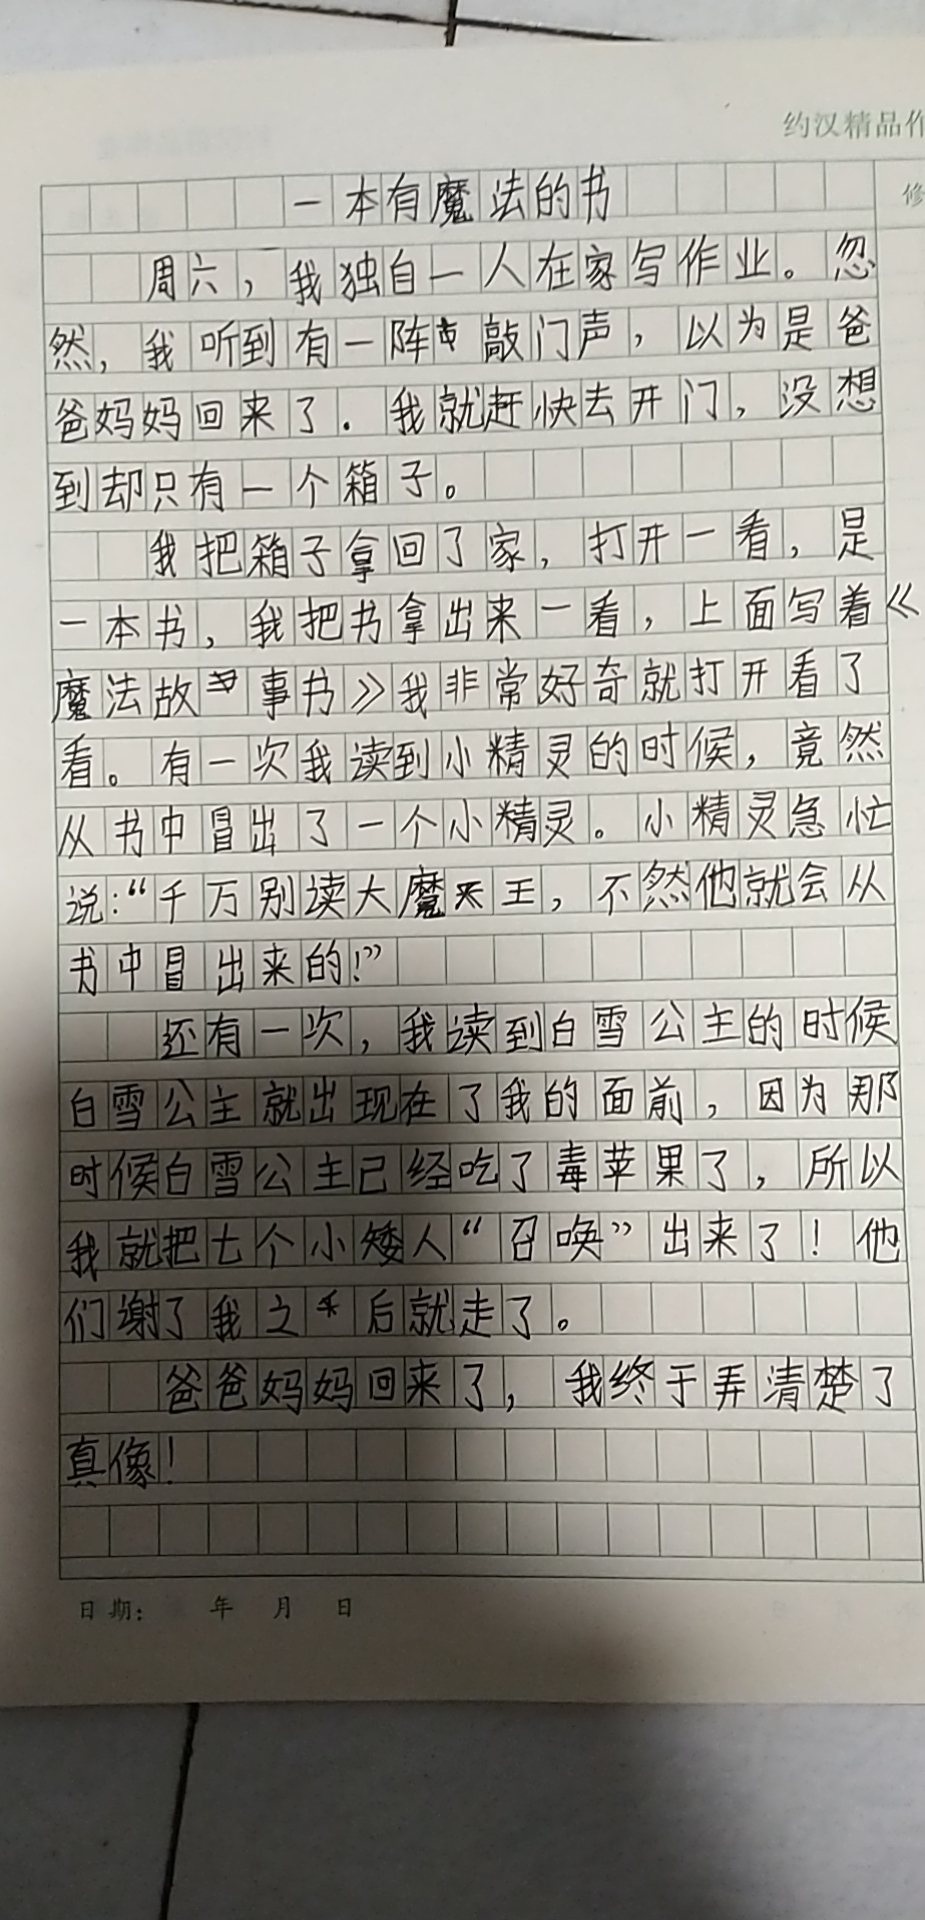 约汉精品作
修
一本有魔法的书
周六，我独自一人在家写作业。忽
然，我听到有一阵敲门声，以为是爸
爸妈妈回来了．我就赶快去开门，没想
到却只有一个箱子。
我把箱子拿回了家，打开一看，是
一本书，我把书拿出来一看，上面写着《
魔法故事书》我非常好奇就打开看了
看。有一次我读到小精灵的时候，竟然
从书中冒出了一个小精灵。小精灵急忙
说：“千万别读大魔王，不然他就会从
书中冒出来的！”
还有一次，我读到白雪公主的时候
白雪公主就出现在了我的面前，因为那
时候白雪公主已经吃了毒苹果了，所以
我就把七个小矮人“召唤”出来了！他
们谢了我之后就走了。
爸爸妈妈回来了，我终于弄清楚了
真像！
日期： 年 月 日